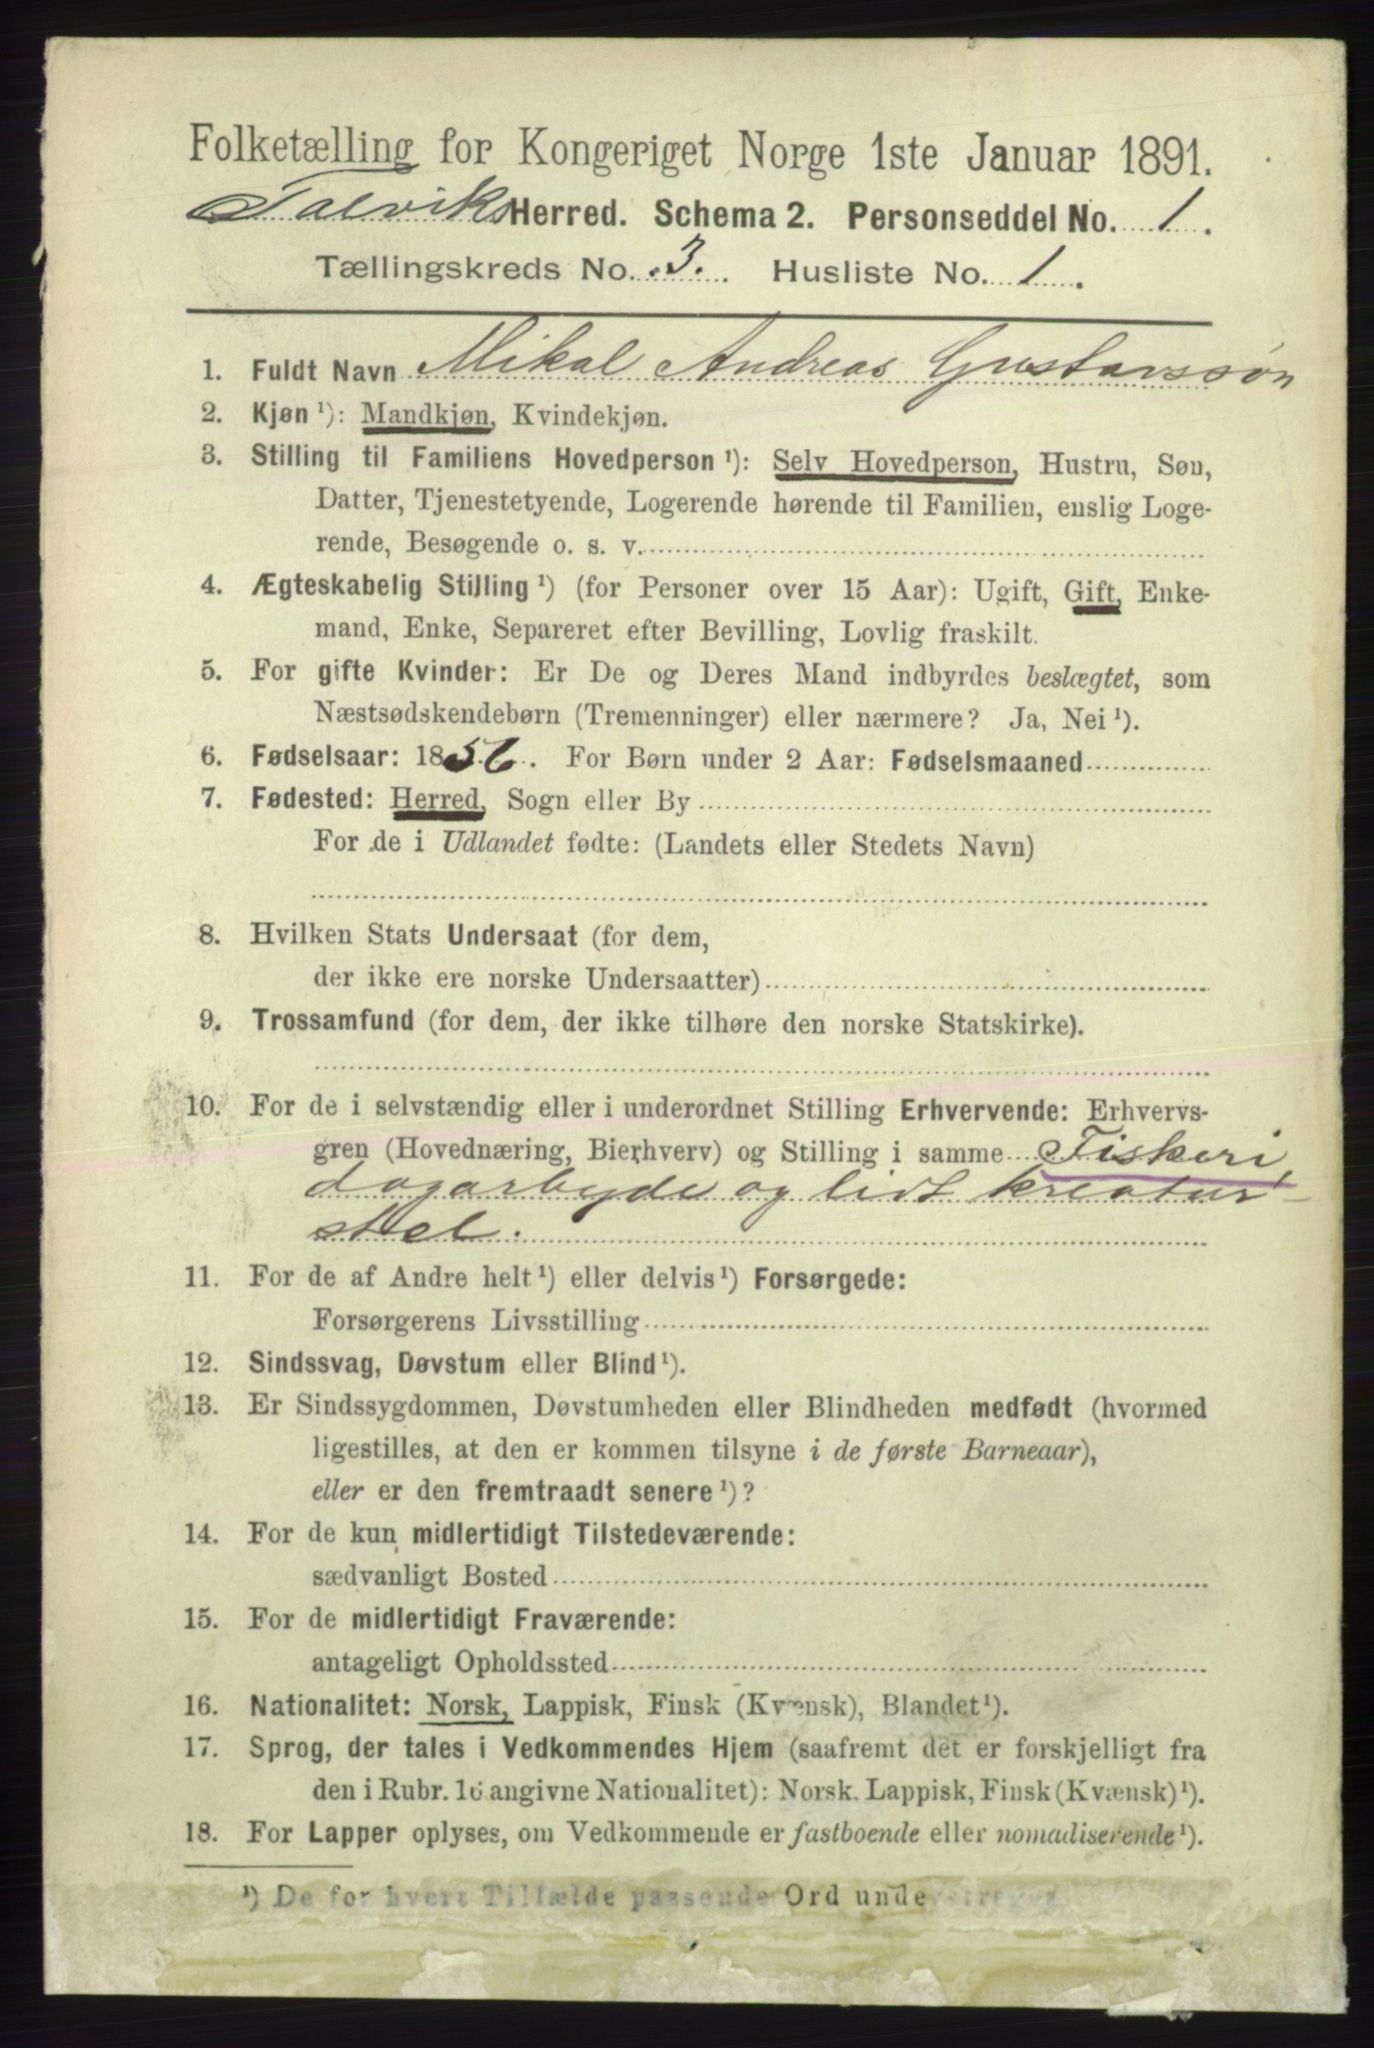 Folketælling for Kongeriget Norge 1ste Januar 1891.
Talviks Herred. Schema 2. Personseddel No. 1.
Tællingskreds No. 3. Husliste No. 1.
1. Fuldt Navn Mikal Andreas Gustavssøn
2. Kjøn ¹): Mandkjøn, Kvindekjøn.
3. Stilling til Familiens Hovedperson ¹): Selv Hovedperson, Hustru, Søn,
Datter, Tjenestetyende, Logerende hørende til Familien, enslig Loge-
rende, Besøgende o. s. v.
4. Ægteskabelig Stilling ¹) (for Personer over 15 Aar): Ugift, Gift, Enke-
mand, Enke, Separeret efter Bevilling, Lovlig fraskilt.
5. For gifte Kvinder: Er De og Deres Mand indbyrdes beslægtet, som
Næstsødskendebørn (Tremenninger) eller nærmere? Ja, Nei ¹).
6. Fødselsaar: 1856. For Børn under 2 Aar: Fødselsmaaned
7. Fødested: Herred, Sogn eller By
For de i Udlandet fødte: (Landets eller Stedets Navn)
8. Hvilken Stats Undersaat (for dem,
der ikke ere norske Undersaatter)
9. Trossamfund (for dem, der ikke tilhøre den norske Statskirke).
10. For de i selvstændig eller i underordnet Stilling Erhvervende: Erhvervs-
gren (Hovednæring, Bierhverv) og Stilling i samme Fiskeri,
dagarbyde og lidt kreatur-
stel.
11. For de af Andre helt ¹) eller delvis ¹) Forsørgede:
Forsørgerens Livsstilling
12. Sindssvag, Døvstum eller Blind ¹).
13. Er Sindssygdommen, Døvstumheden eller Blindheden medfødt (hvormed
ligestilles, at den er kommen tilsyne i de første Barneaar),
eller er den fremtraadt senere ¹)?
14. For de kun midlertidigt Tilstedeværende:
sædvanligt Bosted
15. For de midlertidigt Fraværende:
antageligt Opholdssted
16. Nationalitet: Norsk, Lappisk, Finsk (Kvænsk), Blandet ¹).
17. Sprog, der tales i Vedkommendes Hjem (saafremt det er forskjelligt fra
den i Rubr. 16 angivne Nationalitet): Norsk. Lappisk, Finsk (Kvænsk) ¹).
18. For Lapper oplyses, om Vedkommende er fastboende eller nomadiserende ¹).
¹) De for hvert Tilfælde passende Ord understreges